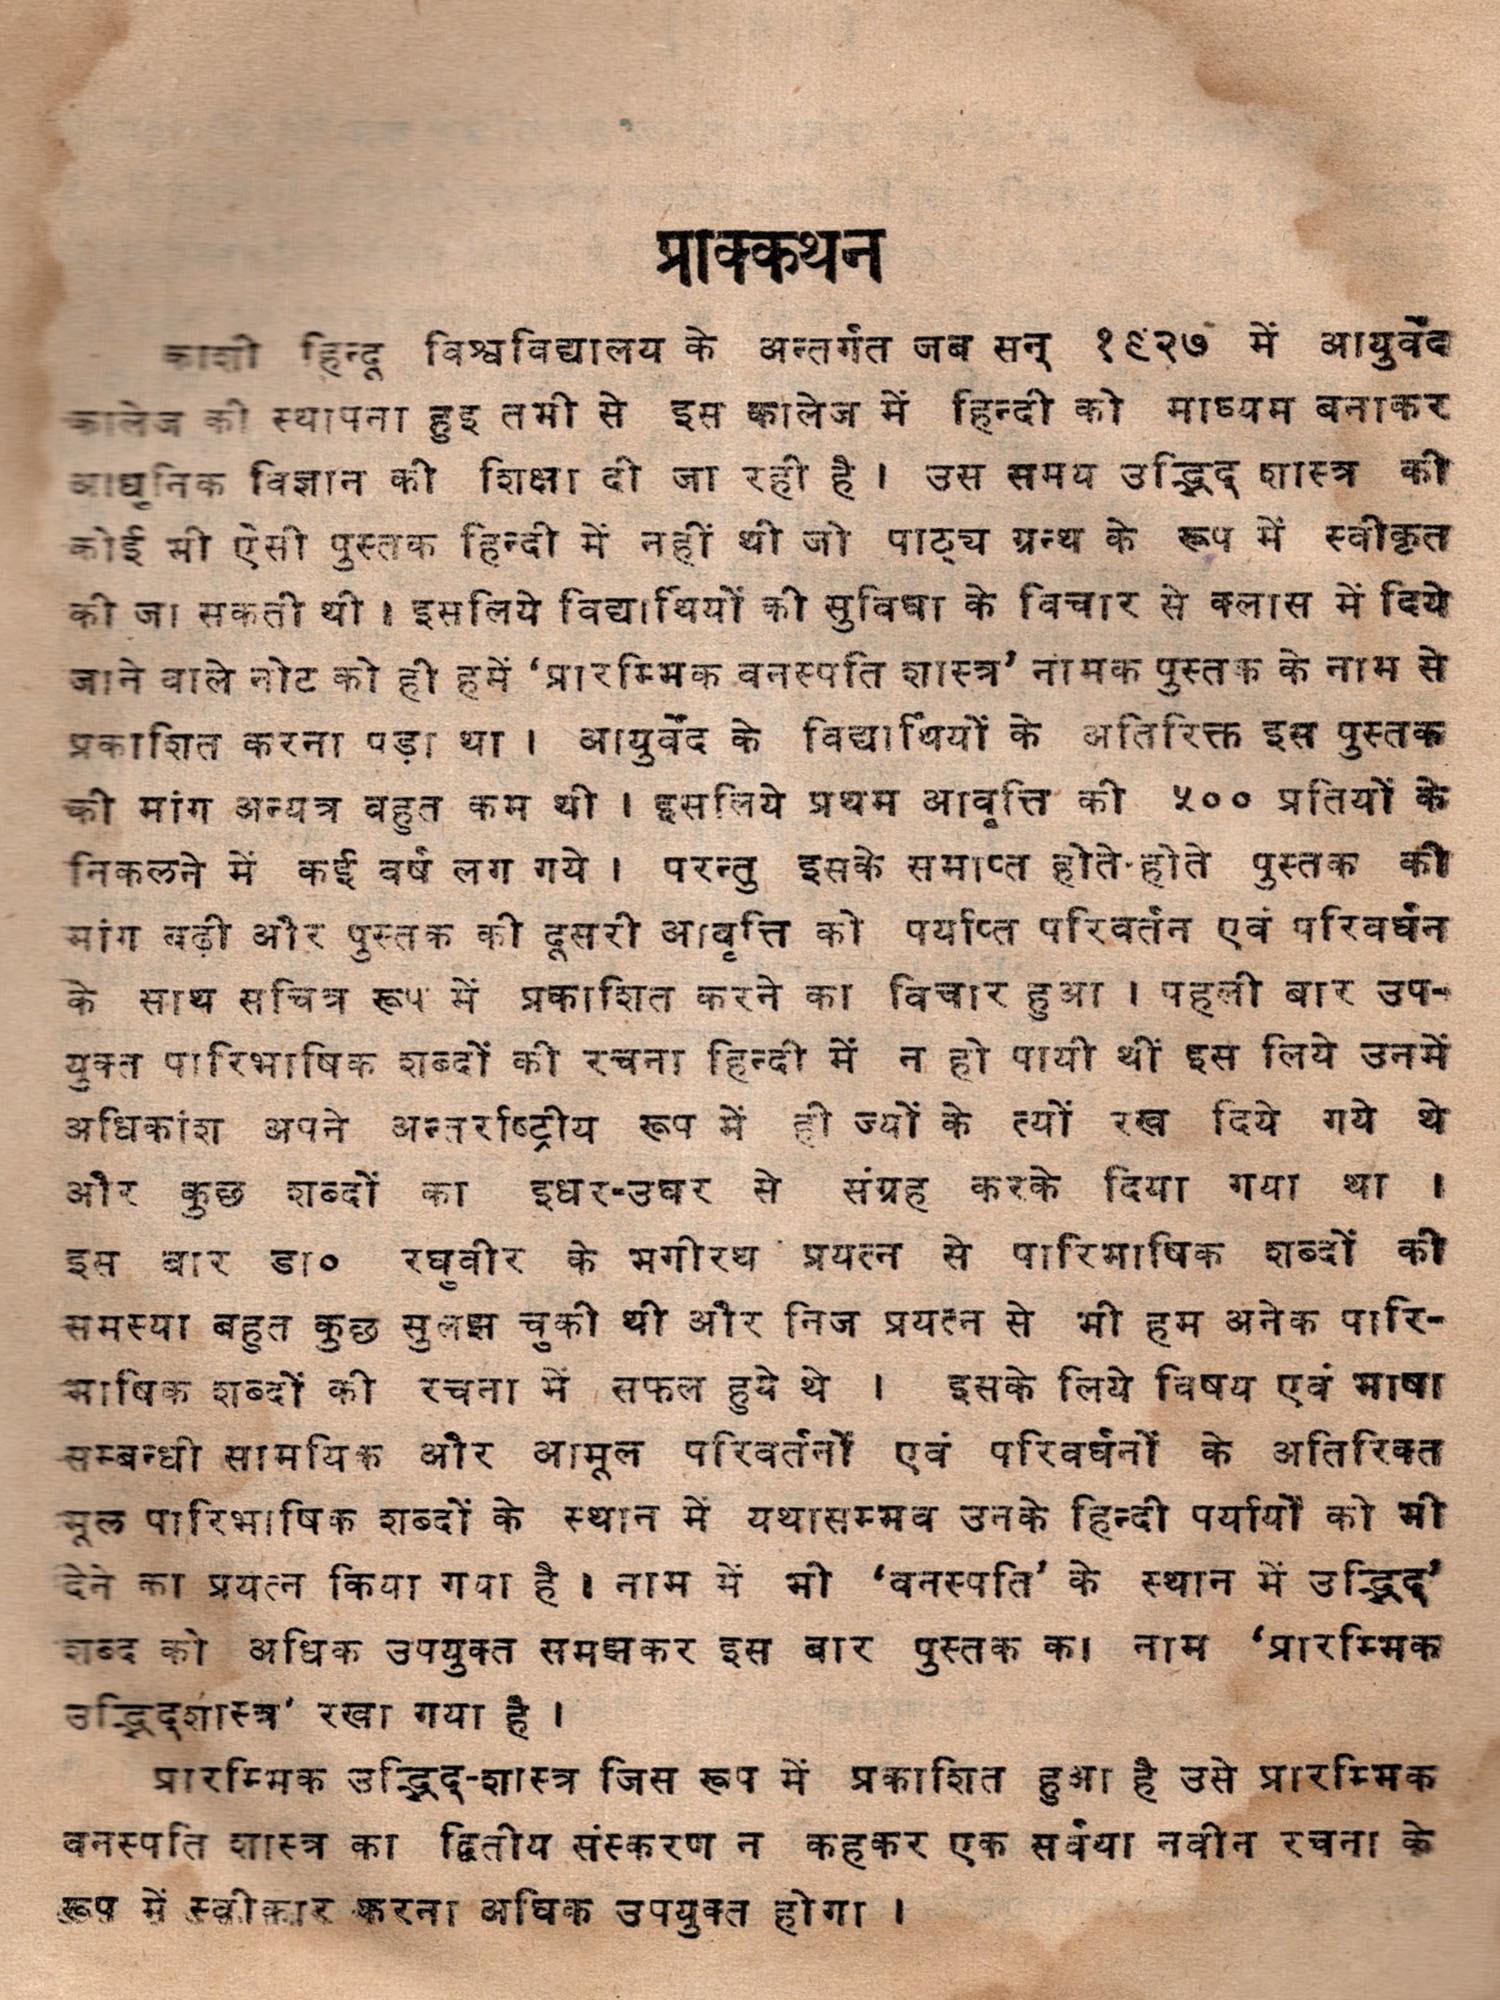 प्राक्कथन
काशी हिन्दू विश्वविद्यालय के अन्तर्गत जब सन् १९२७ में आयुर्वेद
कालेज की स्थापना हुइ तभी से इस कालेज में हिन्दी को माध्यम बनाकर
आधुनिक विज्ञान की शिक्षा दी जा रही है । उस समय उद्भिद् शास्त्र की
कोई भी ऐसी पुस्तक हिन्दी में नहीं थी जो पाठ्य ग्रन्थ के रूप में स्वीकृत
की जा सकती थी । इसलिये विद्यार्थियों की सुविधा के विचार से क्लास में दिये
जाने वाले नोट को ही हमें ‘प्रारम्भिक वनस्पति शास्त्र’ नामक पुस्तक के नाम से
प्रकाशित करना पड़ा था । आयुर्वेद के विद्यार्थियों के अतिरिक्त इस पुस्तक
की मांग अन्यत्र बहुत कम थी । इसलिये प्रथम आवृत्ति की ५०० प्रतियों के
निकलने में कई वर्ष लग गये । परन्तु इसके समाप्त होते-होते पुस्तक की
मांग बढ़ी और पुस्तक की दूसरी आवृत्ति को पर्याप्त परिवर्तन एवं परिवर्धन
के साथ सचित्र रूप में प्रकाशित करने का विचार हुआ । पहली बार उप-
युक्त पारिभाषिक शब्दों की रचना हिन्दी में न हो पायी थीं इस लिये उनमें
अधिकांश अपने अन्तर्राष्ट्रीय रूप में ही ज्यों के त्यों रख दिये गये थे
और कुछ शब्दों का इधर-उधर से संग्रह करके दिया गया था ।
इस बार डा० रघुवीर के भगीरथ प्रयत्न से पारिभाषिक शब्दों की
समस्या बहुत कुछ सुलझ चुकी थी और निज प्रयत्न से भी हम अनेक पारि-
भाषिक शब्दों की रचना में सफल हुये थे । इसके लिये विषय एवं भाषा
सम्बन्धी सामयिक और आमूल परिवर्तनों एवं परिवर्धनों के अतिरिक्त
मूल पारिभाषिक शब्दों के स्थान में यथासम्भव उनके हिन्दी पर्यायों को भी
देने का प्रयत्न किया गया है । नाम में भी ‘वनस्पति’ के स्थान में उद्भिद्’
शब्द को अधिक उपयुक्त समझकर इस बार पुस्तक का नाम ‘प्रारम्भिक
उद्भिद्शास्त्र’ रखा गया है ।
प्रारम्भिक उद्भिद्-शास्त्र जिस रूप में प्रकाशित हुआ है उसे प्रारम्भिक
वनस्पति शास्त्र का द्वितीय संस्करण न कहकर एक सर्वथा नवीन रचना के
रूप में स्वीकार करना अधिक उपयुक्त होगा ।